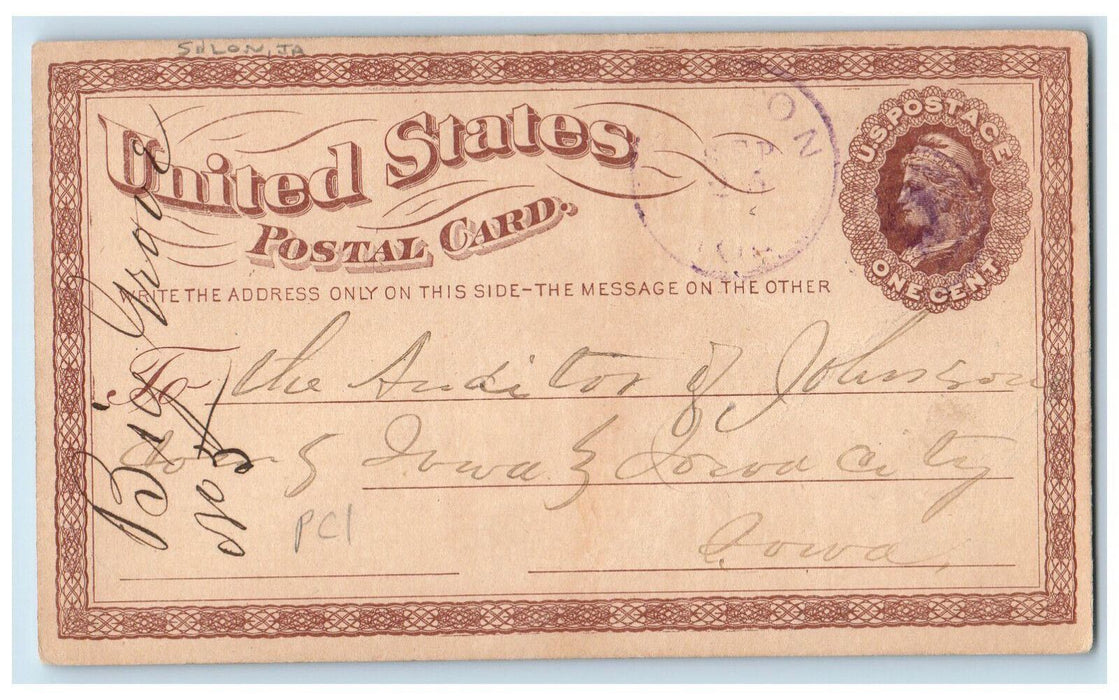 SOLON, IA
United States
POSTAL CARD.
WRITE THE ADDRESS ONLY ON THIS SIDE–THE MESSAGE ON THE OTHER
U.S. POSTAGE
ONE CENT
ON
SEP
To the Auditor of Johnson
Iowa Iowa City
Iowa.
Big Grove
No 5
PC1